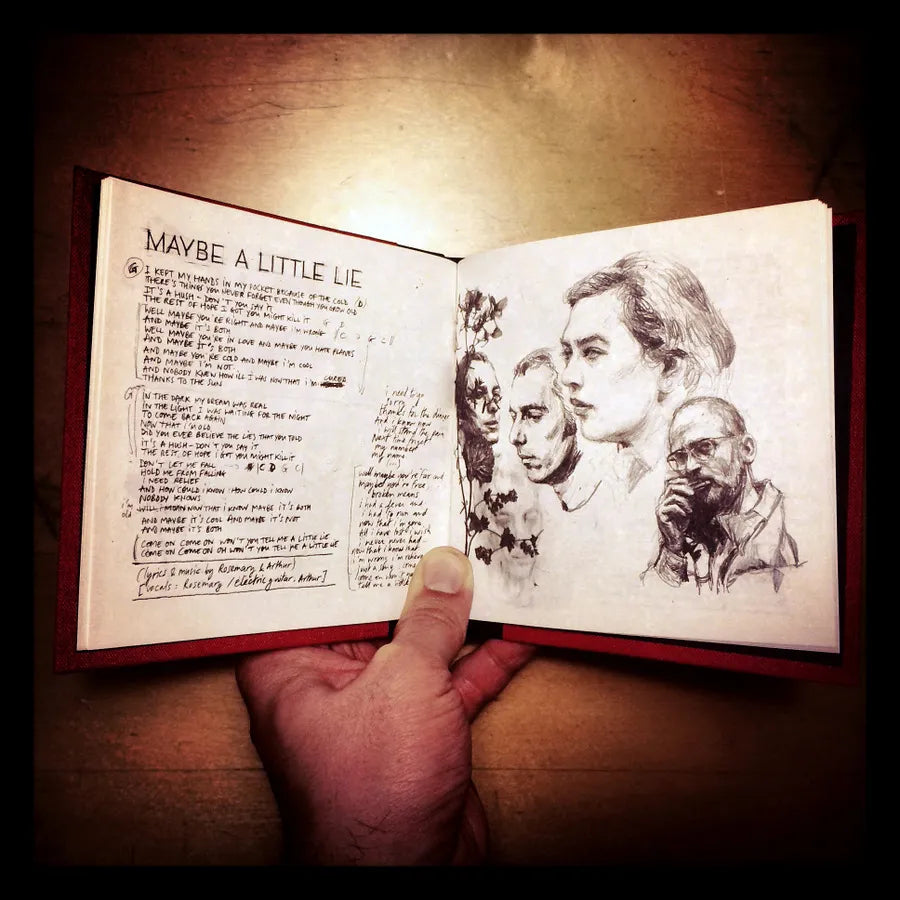 MAYBE A LITTLE LIE
G I KEPT MY HANDS IN MY POCKET BECAUSE OF THE COLD (D)
THERE'S THINGS YOU NEVER FORGET EVEN THOUGH YOU GROW OLD
IT'S A HUSH - DON'T YOU SAY IT
THE REST OF HOPE I GOT YOU MIGHT KILL IT
WELL MAYBE YOU'RE RIGHT AND MAYBE I'M WRONG
AND MAYBE IT'S BOTH
WELL MAYBE YOU'RE IN LOVE AND MAYBE YOU HATE PLANES
AND MAYBE IT'S BOTH
AND MAYBE YOU'RE COLD AND MAYBE I'M COOL
AND MAYBE I'M NOT
AND NOBODY KNEW HOW ILL I WAS NOW THAT I'M CURED
THANKS TO THE SUN
G IN THE DARK MY DREAM WAS REAL
IN THE LIGHT I WAS WAITING FOR THE NIGHT
TO COME BACK AGAIN
NOW THAT I'M OLD
DID YOU EVER BELIEVE THE LIES THAT YOU TOLD
IT'S A HUSH - DON'T YOU SAY IT
THE REST OF HOPE I GOT YOU MIGHT KILL IT
DON'T LET ME FALL → |C D G C|
HOLD ME FROM FALLING
I NEED RELIEF
AND HOW COULD I KNOW HOW COULD I KNOW
NOBODY KNOWS
i'm old
NOW THAT I KNOW MAYBE IT'S BOTH
AND MAYBE IT'S COOL AND MAYBE IT'S NOT
AND MAYBE IT'S BOTH
COME ON COME ON WON'T YOU TELL ME A LITTLE
COME ON COME ON OH WON'T YOU TELL ME A LITTLE LIE
(lyrics & music by Rosemary & Arthur)
[vocals: Rosemary / electric guitar: Arthur]
i need to go
sorry
thanks for the dinner
And i know now
i will stand the pain
Next time forget
my number
my name
(...)
well maybe you're far and
maybe you're true
broken means
i had a fever and
i had to run and
now that i'm gone
All i have lost i wish
i never never had
now that i know that
i'm wrong i'm
just a song come
come on won't you
tell me a little